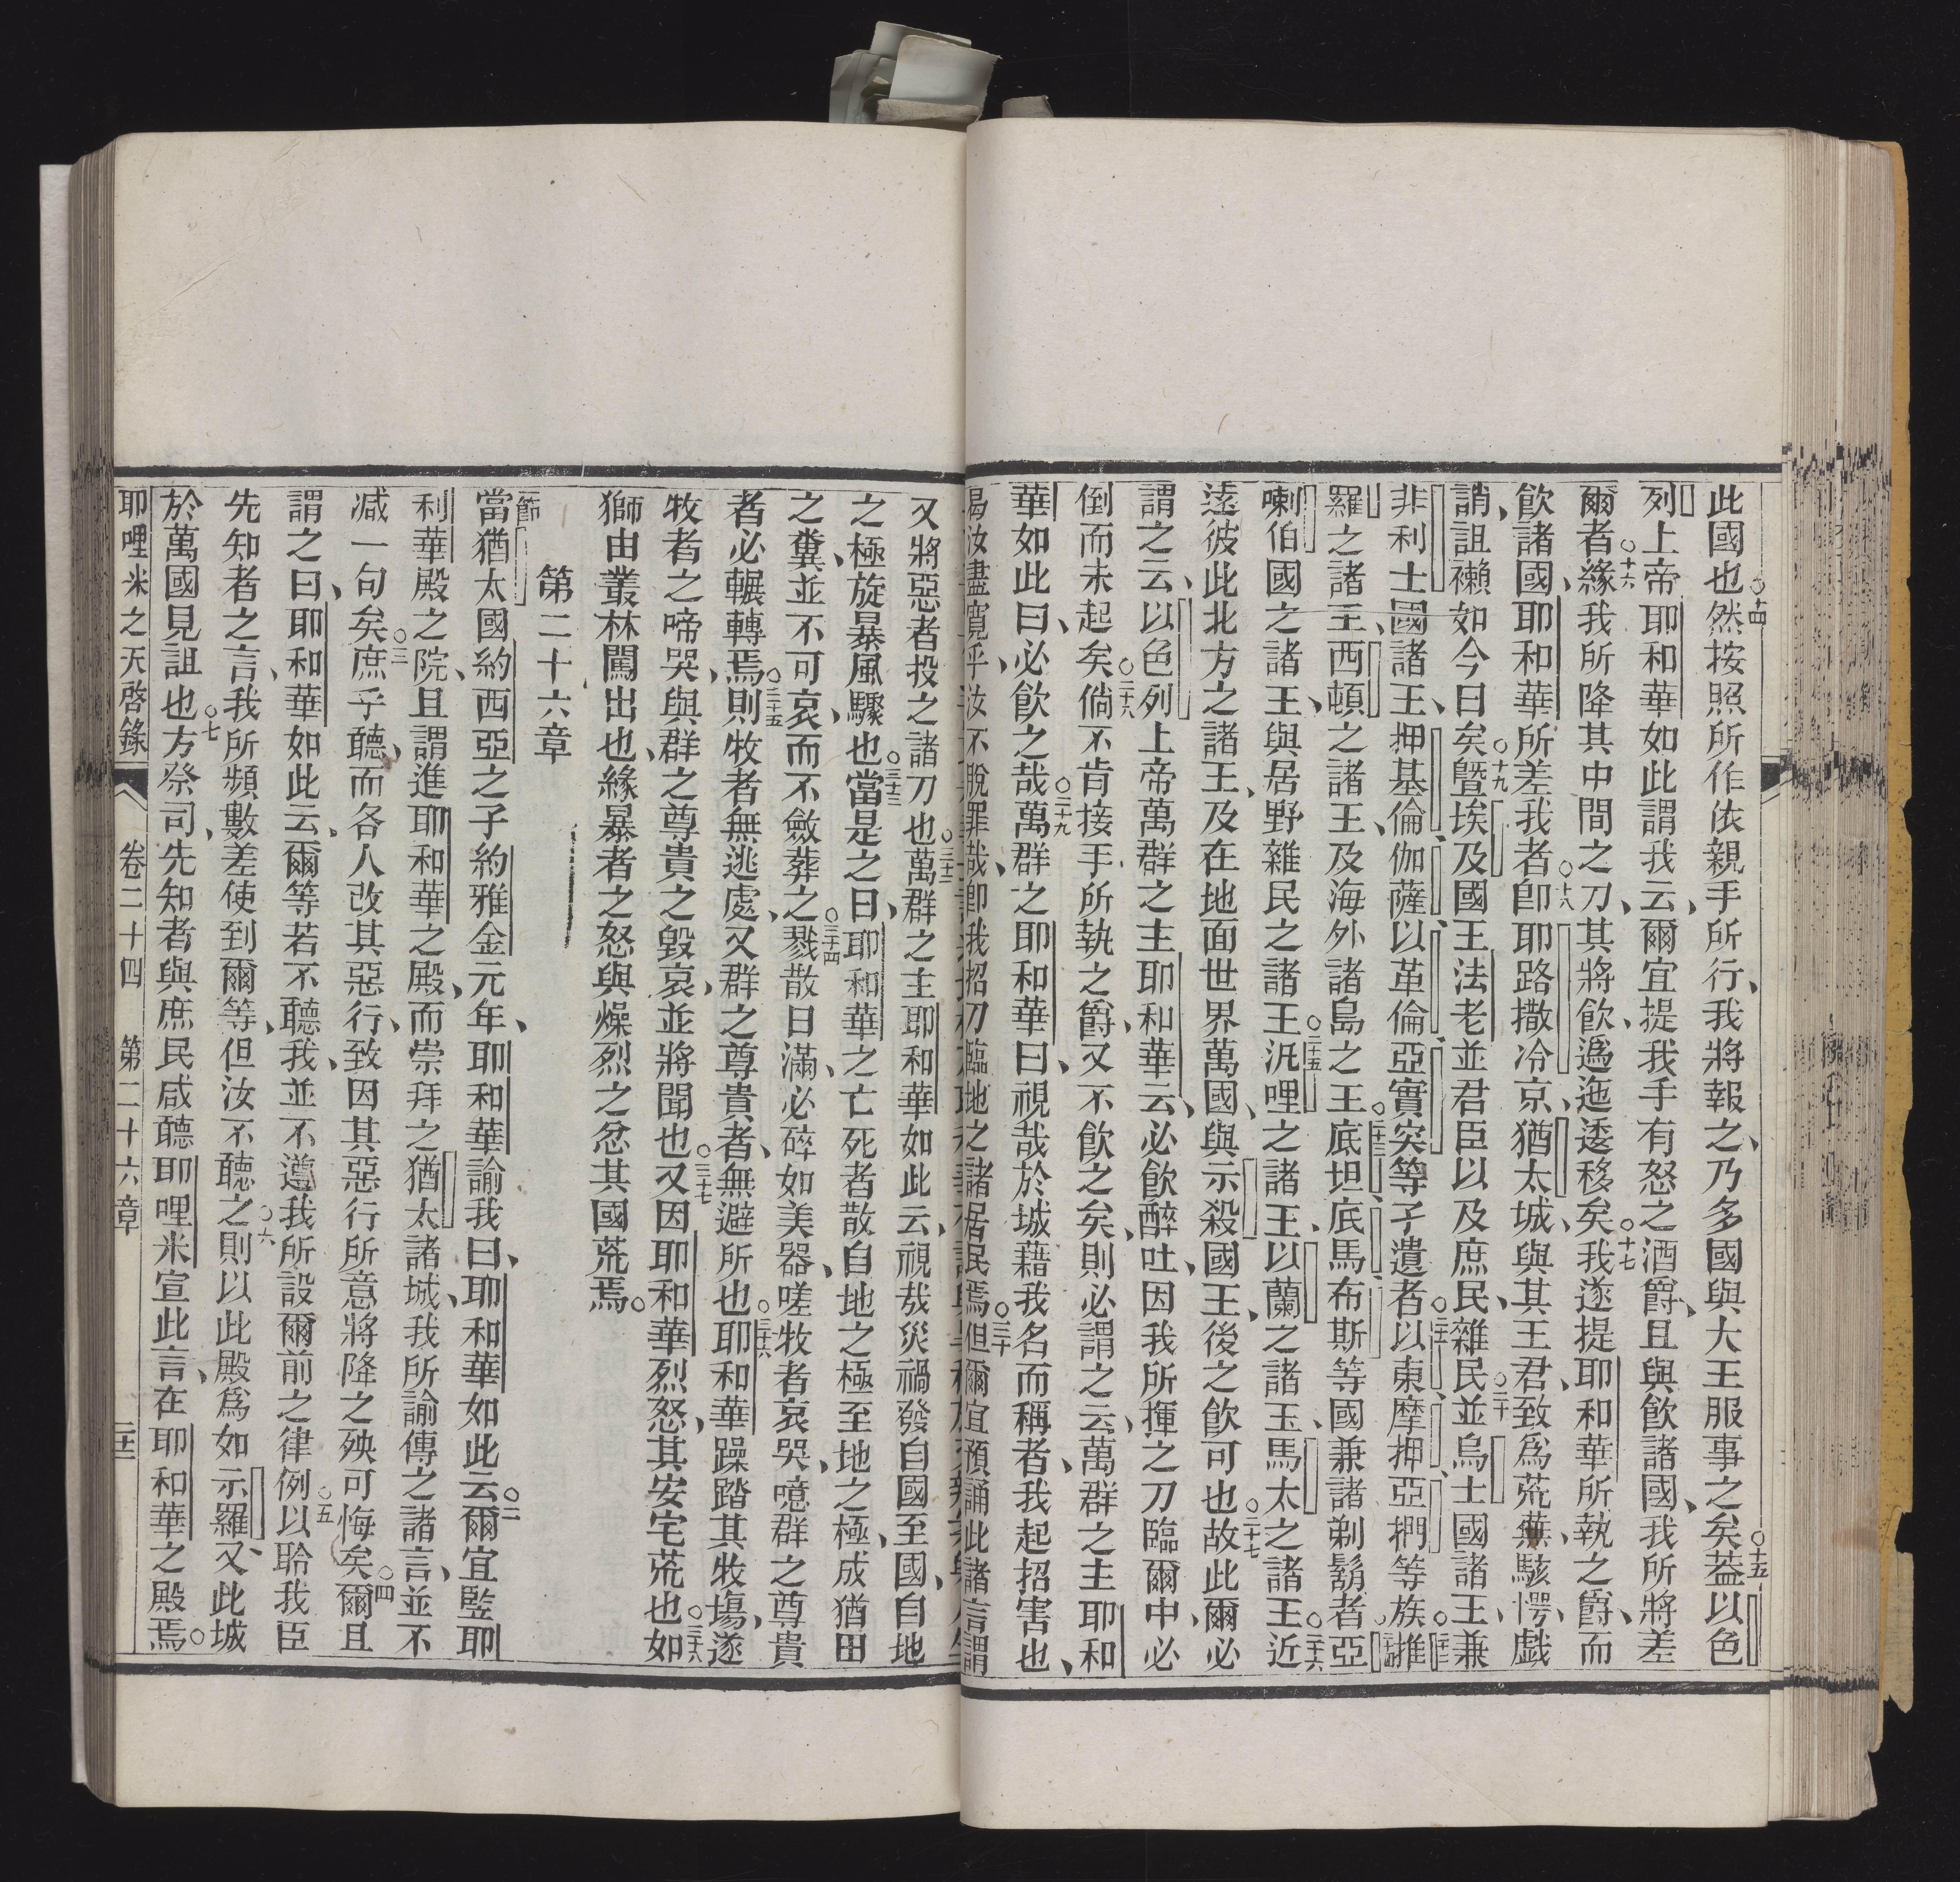 此國也○十四然按照所作依親手所行、我將報之、乃多國與大王服事之矣○十五葢以色
列上帝耶和華如此謂我云、爾宜提我手有怒之酒爵、且與飲諸國、我所將差
爾者○十六緣我所降其中間之刀、其將飲、爲迤逶移矣○十七我遂提耶和華所執之爵、而
飲諸國、耶和華所差我者○十八卽耶路撒冷京、猶太城、與其王君、致爲荒蕪、駭愕、戲
誚、詛襰如今日矣○十九曁埃及國王法老、並君臣以及庶民、○二十雜民並烏士國諸王、兼
非利士國諸王、押基倫、伽薩、以革倫、亞實突等孑遺者○二十一以東、摩押、亞捫等族○二十二推
羅之諸王、西頓之諸王、及海外諸島之王○二十三底坦、底馬、布斯等國、兼諸剃鬍者○二十四亞
喇伯國之諸王、與居野雜民之諸王○二十五汎哩之諸王、以蘭之諸王、馬太之諸王○二十六近
遠彼此北方之諸王、及在地面世界萬國、與示殺國王、後之飲可也○二十七故此爾必
謂之云、以色列上帝萬群之主耶和華云、必飲醉吐、因我所揮之刀臨爾中、必
倒而未起矣○二十八倘不肯接手所執之爵、又不飲之矣、則必謂之云、萬群之主耶和
華如此曰、必飲之哉○二十九萬群之耶和華曰、視哉於城藉我名而稱者、我起招害也、
曷汝盡寬乎、汝不脫罪哉、卽我招刀臨地之諸居民焉○三十但爾宜預誦此諸言謂
又將惡者投之諸刀也○三十二萬群之主耶和華如此云、視哉災禍發自國至國、自地
之極旋暴風驟也○三十三當是之日、耶和華之亡死者散自地之極至地之極、成猶田
之糞、並不可哀、而不斂葬之○三十四戮散日滿、必碎如美器、嗟牧者哀哭、噫群之尊貴
者必輾轉焉○三十五則牧者無逃處、又群之尊貴者、無避所也○三十六耶和華躁踏其牧塲、遂
牧者之啼哭、與群之尊貴之毀哀、並將聞也○三十七又因耶和華烈怒、其安宅荒也○三十八如
獅由叢林闖出也、緣暴者之怒與燥烈之忿其國荒焉○
第二十六章
節一當猶太國約西亞之子約雅金元年、耶和華諭我曰、耶和華如此云○二爾宜監耶
利華殿之院、且謂進耶和華之殿、而崇拜之猶太諸城、我所諭傳之諸言、並不
減一句矣○三庶乎聽、而各人改其惡行、致因其惡行所意將降之殃可悔矣○四爾且
謂之曰、耶和華如此云、爾等若不聽我、並不遵我所設爾前之律例○五以聆我臣
先知者之言、我所頻數差使到爾等、但汝不聽之○六則以此殿爲如示羅、又此城
於萬國見詛也○七方祭司、先知者與庶民咸聽耶哩米宣此言、在耶和華之殿焉○
耶哩米之天啓錄 卷二十四 第二十六章 三十二